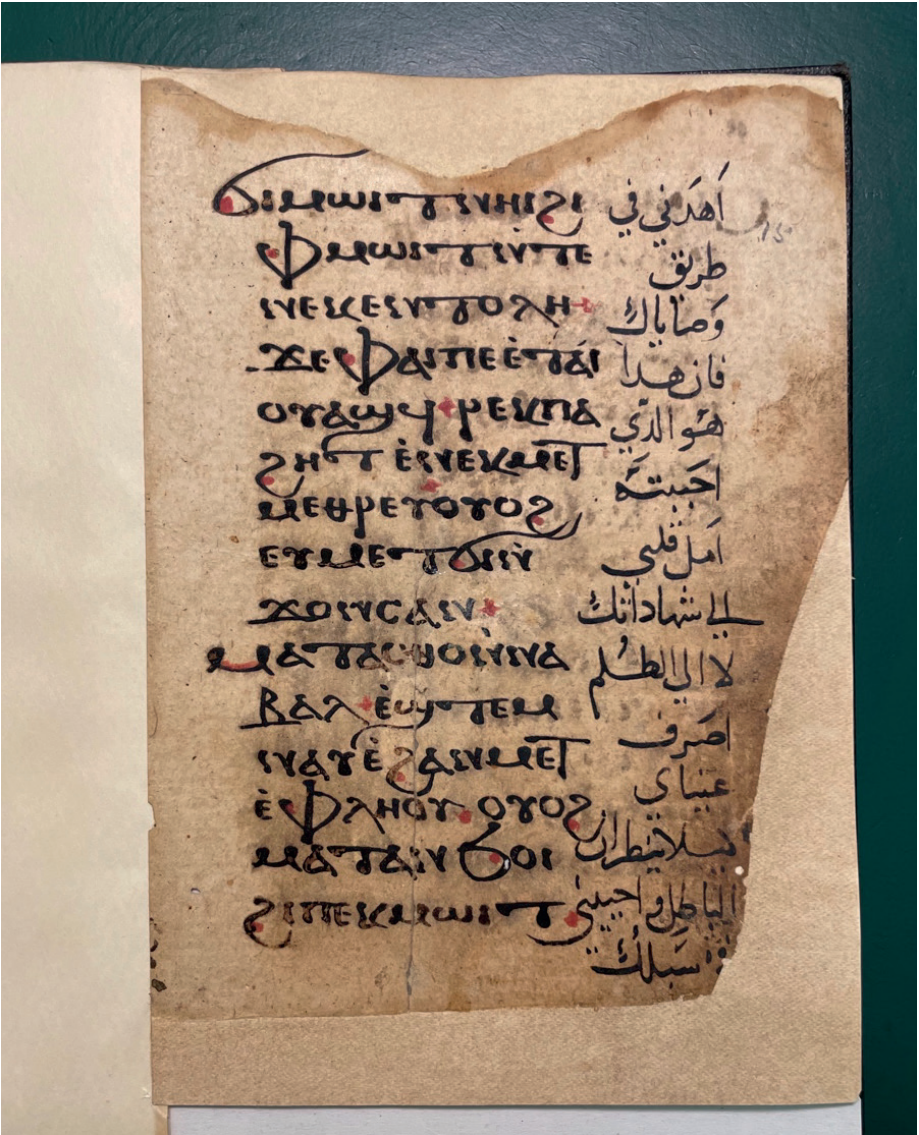 ϭⲓⲙⲱⲓⲧⲛⲏⲓϩⲓ
ⲫⲙⲱⲓⲧⲛ̀ⲧⲉ
ⲛⲉⲕⲉⲛⲧⲟⲗⲏ
ϫⲉⲫⲁⲓⲡⲉⲉ̀ⲧⲁⲓ
ⲟⲩⲁϣϥ ⲣⲉⲕⲡⲁ
ϩⲏⲧ ⲉ̀ⲛⲉⲕⲙⲉⲧ
ⲙⲉⲑⲣⲉⲩⲟⲩⲟϩ
ⲉⲩⲙⲉⲧϭⲓⲛ̀
ϫⲟⲛⲥⲁⲛ
ⲙⲁⲧⲁⲥⲑⲟⲛ̀ⲛⲁ
ⲃⲁⲗ ⲉ̀ϣⲧⲉⲙ
ⲛⲁⲩⲉ̀ϩⲁⲛⲙⲉⲧ
ⲉ̀ⲫⲗⲏⲟⲩ ⲟⲩⲟϩ
ⲙⲁⲧⲁⲛϧⲟⲓ
ϩⲓⲡⲉⲕⲙⲱⲓⲧ
اَهدَني في
طريق
وَصَاياك
فان هَدا
هُو الدَي
احَببتَه
اَمل قلبي
الي شهاداتك
لا الي الظُلم
اصَرف
عيناي
ليلا ينظران
الباطل واحييني
سَبلك